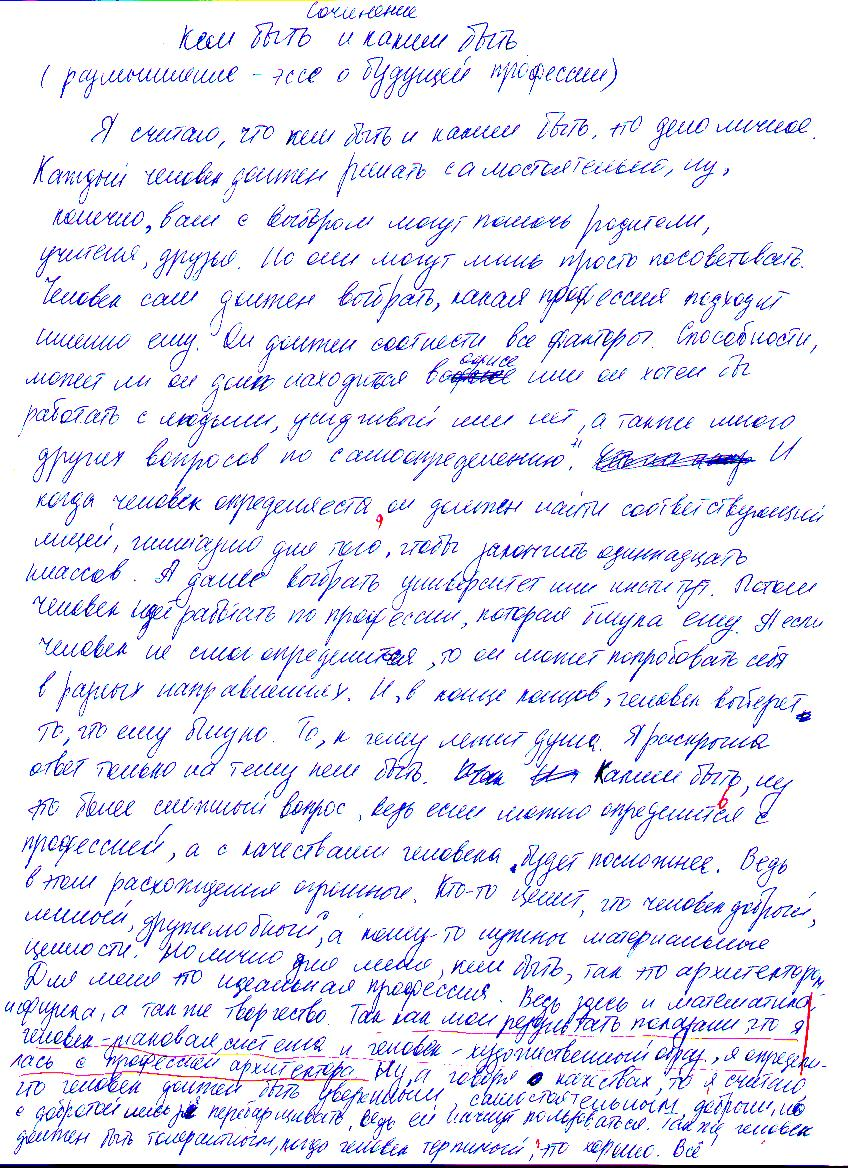 Сочинение
Кем быть и каким быть
(размышление - эссе о будущей профессии)
Я считаю, что кем быть и каким быть, это дело личное.
Каждый человек должен решать самостоятельно, ну,
конечно, вам с выбором могут помочь родители,
учителя, друзья. Но они могут лишь просто посоветовать.
Человек сам должен выбрать, какая профессия подходит
именно ему. Он должен соотнести все факторы. Способности,
может ли он долго находится в офисе или он хотел бы
работать с людьми, усидчивый или нет, а также много
других вопросов по самоопределению. И
когда человек определяется, он должен найти соответствующий
лицей, гимназию для того, чтобы закончить одиннадцать
классов. А далее выбрать университет или институт. Потом
человек идет работать по профессии, которая близка ему. А если
человек не смог определится, то он может попробовать себя
в разных направлениях. И, в конце концов, человек выберет
то, что ему близко. То, к чему лежит душа. Я раскрыла
ответ только на тему кем быть. Каким быть, ну
это более сложный вопрос, ведь если можно определится с
профессией, а с качествами человека будет посложнее. Ведь
в этом расхождения огромные. Кто-то ценит, что человек добрый,
милый, дружелюбный, а кому-то нужны материальные
ценности. Но лично для меня, кем быть, так это архитектором
Для меня это идеальная профессия. Ведь здесь и математика
и физика, а так же творчество. Так как мои результаты показали что я
человек-знаковая система и человек-художественный образ, я определи-
лась с профессией архитектора. Ну, а говоря о качествах, то я считаю
что человек должен быть уверенным, самостоятельным, добрым, но
с добротой нельзя перебарщивать, ведь ей начнут пользоваться. Также человек
должен быть толерантным, когда человек терпимый, это хорошо. Всё